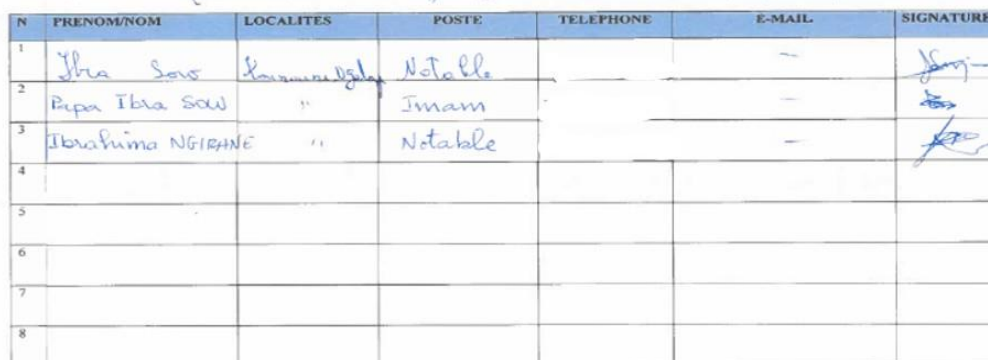 N PRENOM/NOM LOCALITES POSTE TELEPHONE E-MAIL SIGNATURE
1 Ibra Sow Notable —
2 Papa Ibra SOW " Imam —
3 Ibrahima NGIRANE " Notable —
4
5
6
7
8